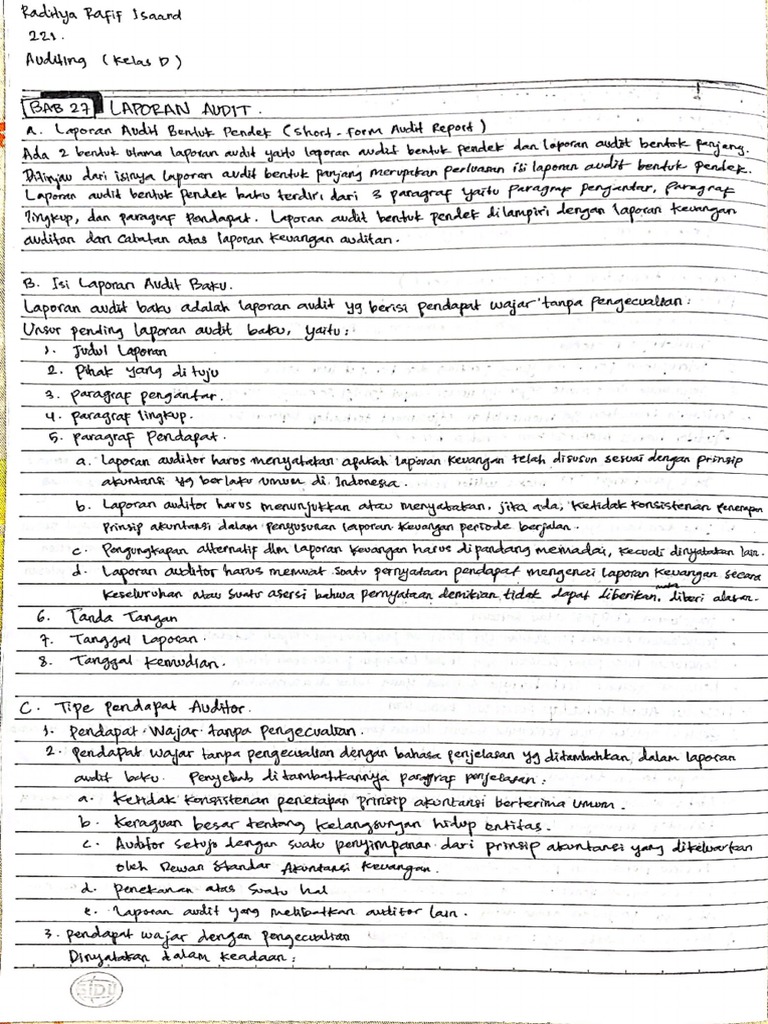 Raditya Rafif Isaard
221.
Auditing (Kelas D)
BAB 27 LAPORAN AUDIT.
A. Laporan Audit Bentuk Pendek (Short-Form Audit Report)
Ada 2 bentuk utama laporan audit yaitu laporan audit bentuk pendek dan laporan audit bentuk panjang.
Ditinjau dari isinya laporan audit bentuk panjang merupakan perluasan isi laporan audit bentuk pendek.
Laporan audit bentuk pendek baku terdiri dari 3 paragraf yaitu paragraf pengantar, paragraf
lingkup, dan paragraf pendapat. Laporan audit bentuk pendek dilampiri dengan laporan keuangan
auditan dan catatan atas laporan keuangan auditan.
B. Isi Laporan Audit Baku.
Laporan audit baku adalah laporan audit yg berisi pendapat wajar tanpa pengecualian:
Unsur penting laporan audit baku, yaitu:
1. Judul Laporan
2. Pihak yang dituju
3. paragraf pengantar.
4. paragraf lingkup.
5. paragraf Pendapat.
a. Laporan auditor harus menyatakan apakah laporan keuangan telah disusun sesuai dengan prinsip
akuntansi yg berlaku umum di Indonesia.
b. Laporan auditor harus menunjukkan atau menyatakan, jika ada, ketidak konsistenan penerapan
prinsip akuntansi dalam penyusunan laporan keuangan periode berjalan.
c. Pengungkapan alternatif dlm laporan keuangan harus dipandang memadai, kecuali dinyatakan lain.
d. Laporan auditor harus memuat suatu pernyataan pendapat mengenai laporan keuangan secara
keseluruhan atau suatu asersi bahwa pernyataan demikian tidak dapat diberikan, maka diberi alasan.
6. Tanda Tangan
7. Tanggal Laporan.
8. Tanggal Kemudian.
C. Tipe Pendapat Auditor.
1. Pendapat Wajar tanpa Pengecualian.
2. pendapat wajar tanpa pengecualian dengan bahasa penjelasan yg ditambahkan dalam laporan
audit baku. Penyebab ditambahkannya paragraf penjelasan:
a. Ketidak konsistenan penerapan prinsip akuntansi berterima umum.
b. Keraguan besar tentang kelangsungan hidup entitas.
c. Auditor setuju dengan suatu penyimpanan dari prinsip akuntansi yang dikeluarkan
oleh Dewan Standar Akuntansi Keuangan.
d. penekanan atas suatu hal
e. laporan audit yang melibatkan auditor lain.
3. pendapat wajar dengan pengecualian
Dinyatakan dalam keadaan:
SIDU